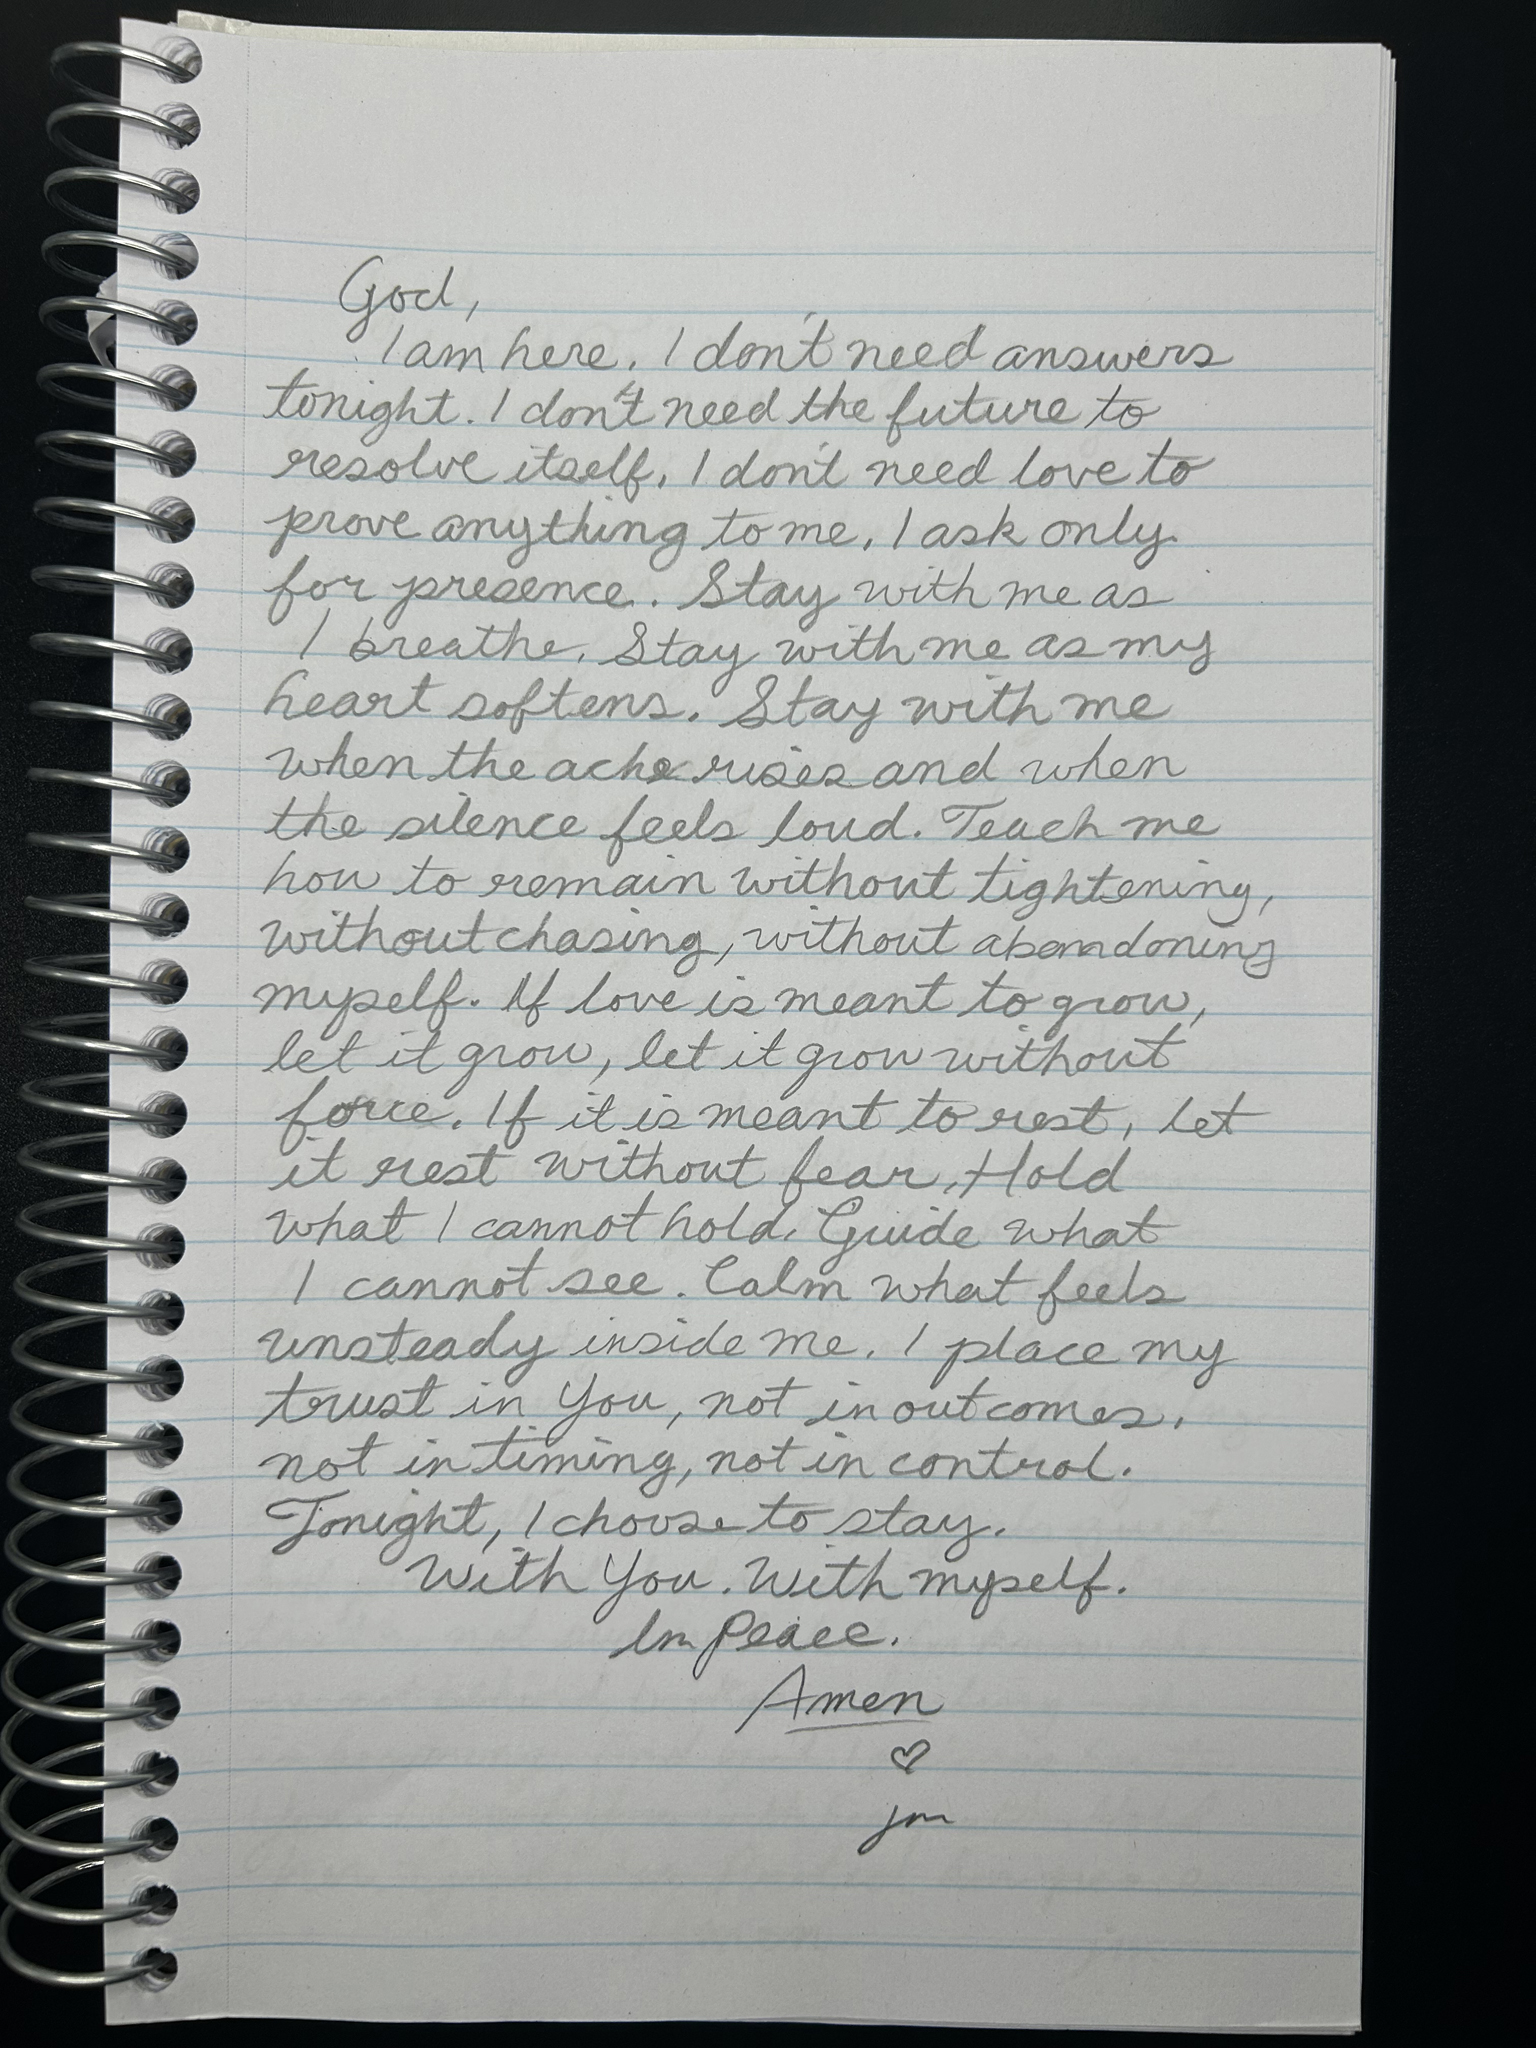 God,
I am here. I don't need answers
tonight. I don't need the future to
resolve itself. I don't need love to
prove anything to me. I ask only
for presence. Stay with me as
I breathe. Stay with me as my
heart softens. Stay with me
when the ache rises and when
the silence feels loud. Teach me
how to remain without tightening,
without chasing, without abandoning
myself. If love is meant to grow,
let it grow, let it grow without
force. If it is meant to rest, let
it rest without fear. Hold
what I cannot hold. Guide what
I cannot see. Calm what feels
unsteady inside me. I place my
trust in You, not in outcomes,
not in timing, not in control.
Tonight, I choose to stay.
With You. With myself.
In Peace.
Amen
♡
jm